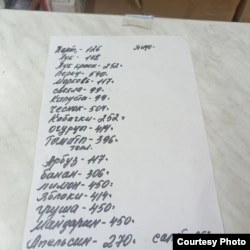 Карт. - 126
Лук - 108
Лук красн - 252.
Перец - 540.
Морковь - 117.
свекла - 99.
Капуста - 99.
Чеснок - 504.
Кабачки - 252.
Огурцы - 414.
Томаты - 396.
Арбуз - 117.
Банан - 306.
Лимон - 450.
Яблоки - 414.
Груша - 450.
Мандарин - 450.
Апельсин - 270.
Courtesy Photo